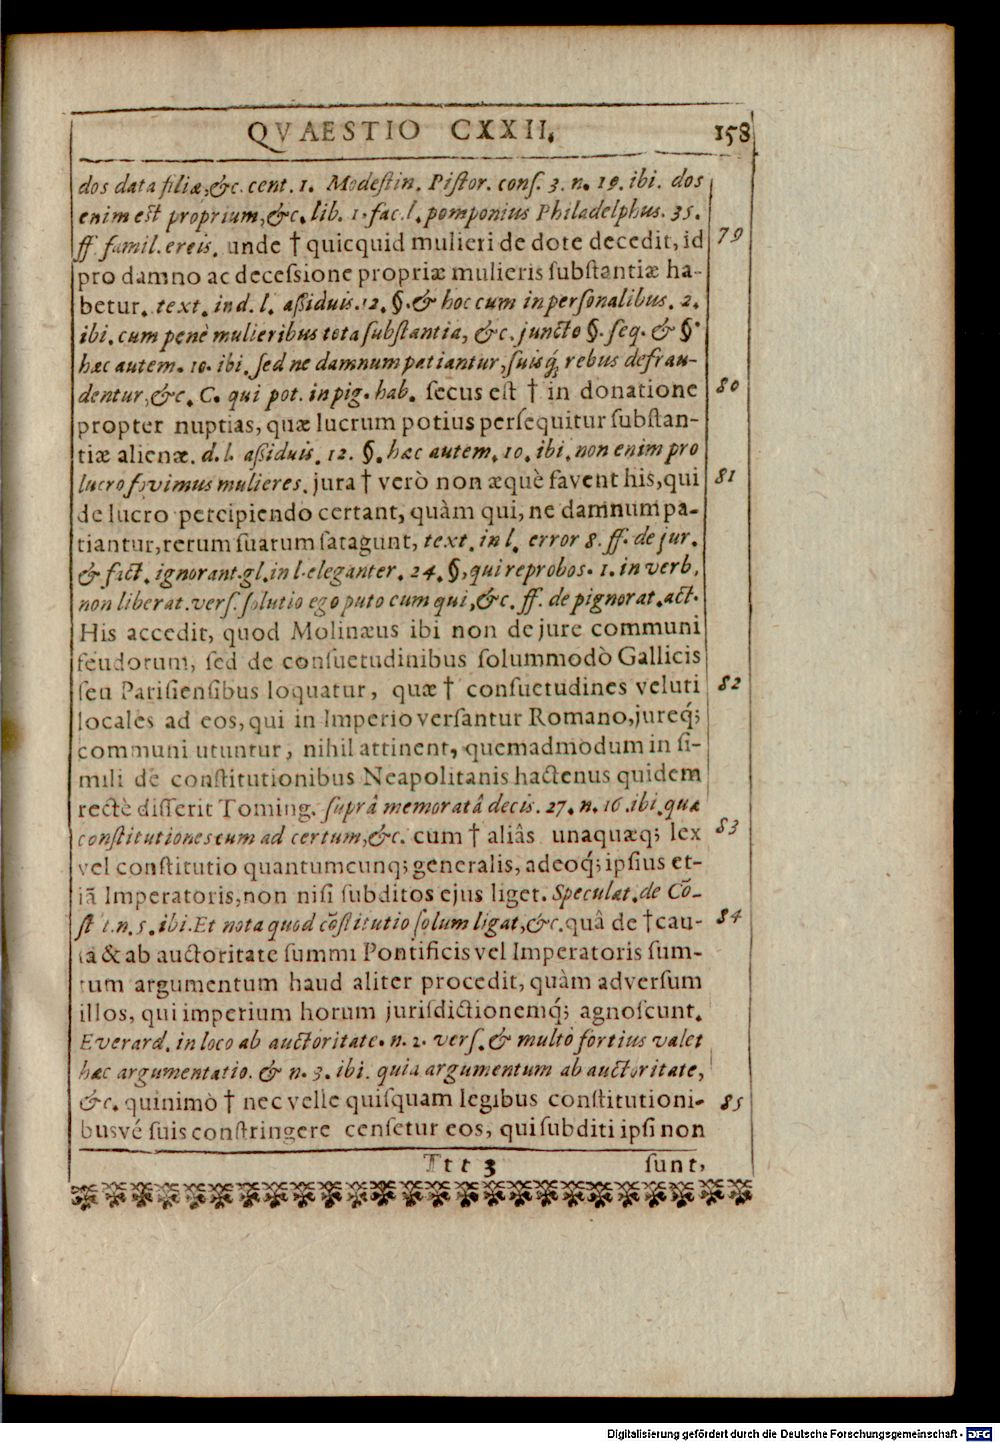 QVAESTIO CXXII. 158
dos data filiæ, &c. cent. 1. Modestin. Pistor. cons. 3. n. 19. ibi. dos
enim est proprium, &c. lib. 1. fac. l. pomponius Philadelphus. 35.
ff. famil. ercis. unde † quicquid mulieri de dote decedit, id 79
pro damno ac decessione propriæ mulieris substantiæ ha-
betur. text. in d. l. assiduis. 12. §. & hoc cum in personalibus. 2.
ibi. cum penè mulieribus tota substantia, &c. juncto §. seq. & §.
hæc autem. 10. ibi. sed ne damnum patiantur, suisq; rebus defrau-
dentur, &c. C. qui pot. in pig. hab. secus est † in donatione 80
propter nuptias, quæ lucrum potius persequitur substan-
tiæ alienæ. d. l. assiduis. 12. §. hæc autem. 10. ibi. non enim pro
lucro fovimus mulieres. jura † verò non æquè favent his, qui 81
de lucro percipiendo certant, quàm qui, ne damnum pa-
tiantur, rerum suarum satagunt, text. in l. error 8. ff. de jur.
& fact. ignorant. gl. in l. eleganter. 24. §. qui reprobos. 1. in verb.
non liberat. vers. solutio ego puto cum qui, &c. ff. de pignorat. act.
His accedit, quod Molinæus ibi non de jure communi
feudorum, sed de consuetudinibus solummodò Gallicis
seu Parisiensibus loquatur, quæ † consuetudines veluti 82
locales ad eos, qui in Imperio versantur Romano, jureq́;
communi utuntur, nihil attinent, quemadmodum in si-
mili de constitutionibus Neapolitanis hactenus quidem
rectè disserit Toming. suprâ memoratâ decis. 27. n. 16. ibi. quæ
constitutiones cum ad certum, &c. cum † aliâs unaquæq; lex 83
vel constitutio quantumcunq; generalis, adeoq́; ipsius et-
iã Imperatoris, non nisi subditos ejus liget. Speculat. de Cõ-
st t. n. 5. ibi. Et nota quod cõstitutio solum ligat, &c. quâ de † cau- 84
sa & ab auctoritate summi Pontificis vel Imperatoris sum-
tum argumentum haud aliter procedit, quàm adversum
illos, qui imperium horum jurisdictionemq́; agnoscunt.
Everard. in loco ab auctoritate. n. 2. vers. & multò fortius valet
hæc argumentatio. & n. 3. ibi. quia argumentum ab auctoritate,
&c. quinimò † nec velle quisquam legibus constitutioni- 85
busvé suis constringere censetur eos, qui subditi ipsi non
Ttt 3 sunt,
Digitalisierung gefördert durch die Deutsche Forschungsgemeinschaft - DFG